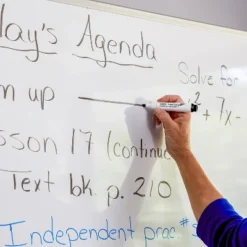 lay's Agenda
Solve for
m up
x² + 7x -
sson 17 (continu
Text bk p. 210
Independent prac #s